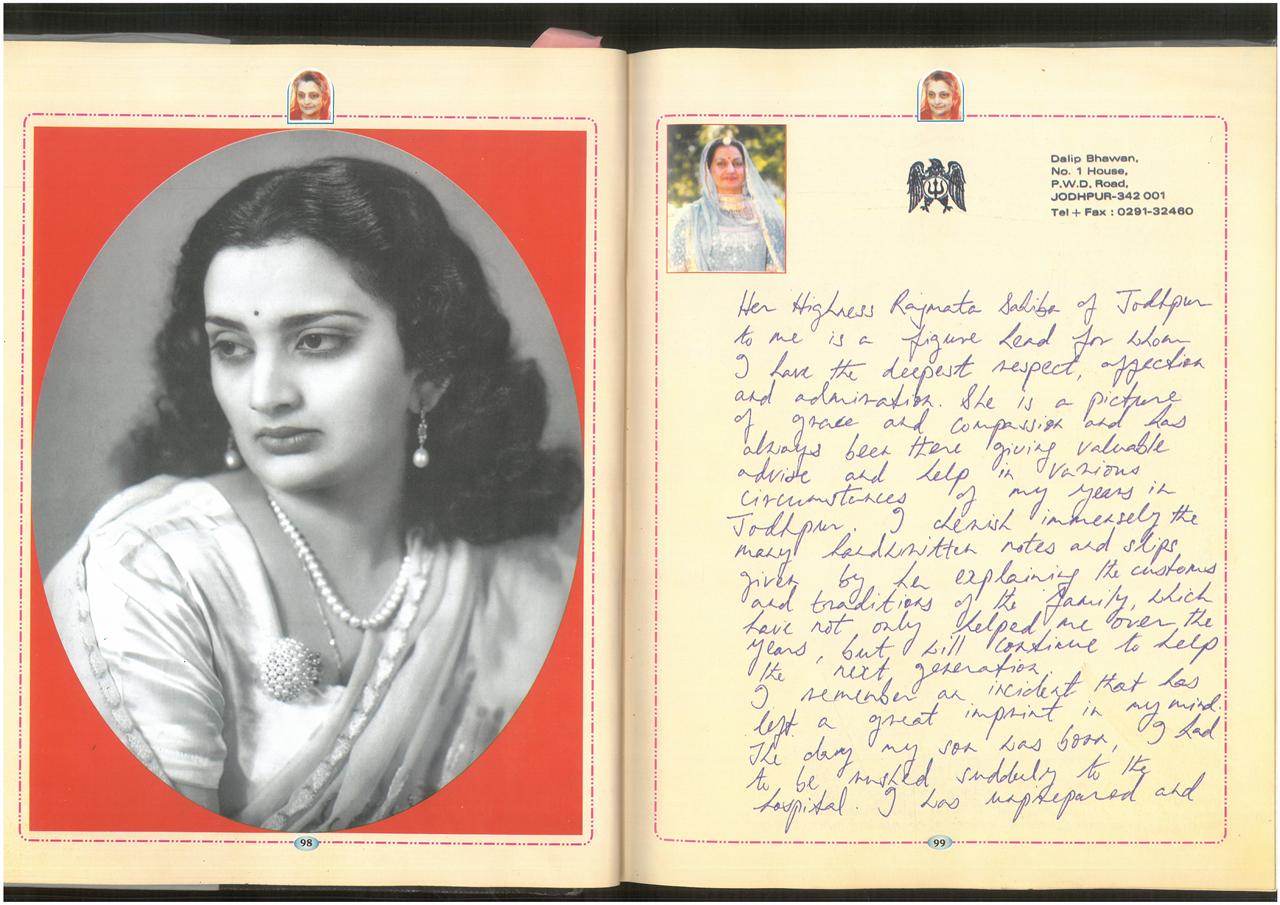 Dalip Bhawan,
No. 1 House,
P.W.D. Road,
JODHPUR-342 001
Tel + Fax : 0291-32460
Her Highness Rajmata Sahiba of Jodhpur
to me is a figure head for whom
I have the deepest respect, affection
and admiration. She is a picture
of grace and compassion and has
always been there giving valuable
advise and help in various
circumstances of my years in
Jodhpur. I cherish immensely the
many handwritten notes and slips
given by her explaining the customs
and traditions of the family, which
have not only helped me over the
years, but will continue to help
the next generation.
I remember an incident that has
left a great imprint in my mind.
The day my son was born, I had
to be rushed suddenly to the
hospital. I was unprepared and
98
99